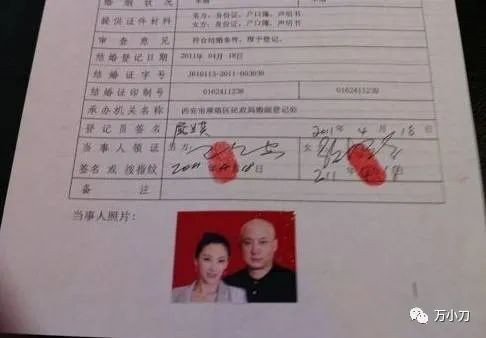 婚姻状况
提供证件材料 男方：身份证，户口簿，声明书
女方：身份证，户口簿，声明书
审查意见 符合结婚条件，准予登记。
结婚登记日期 2011年 04月 18日
结婚证字号 J610113-2011-003030
结婚证印制号 0162411239 0162411239
承办机关名称 西安市雁塔区民政局婚姻登记处
登记员签名 2011年 4月 18日
当事人领证 男方 女
签名或按指纹 2011年4月18日 211年 18
备注
当事人照片：
万小刀